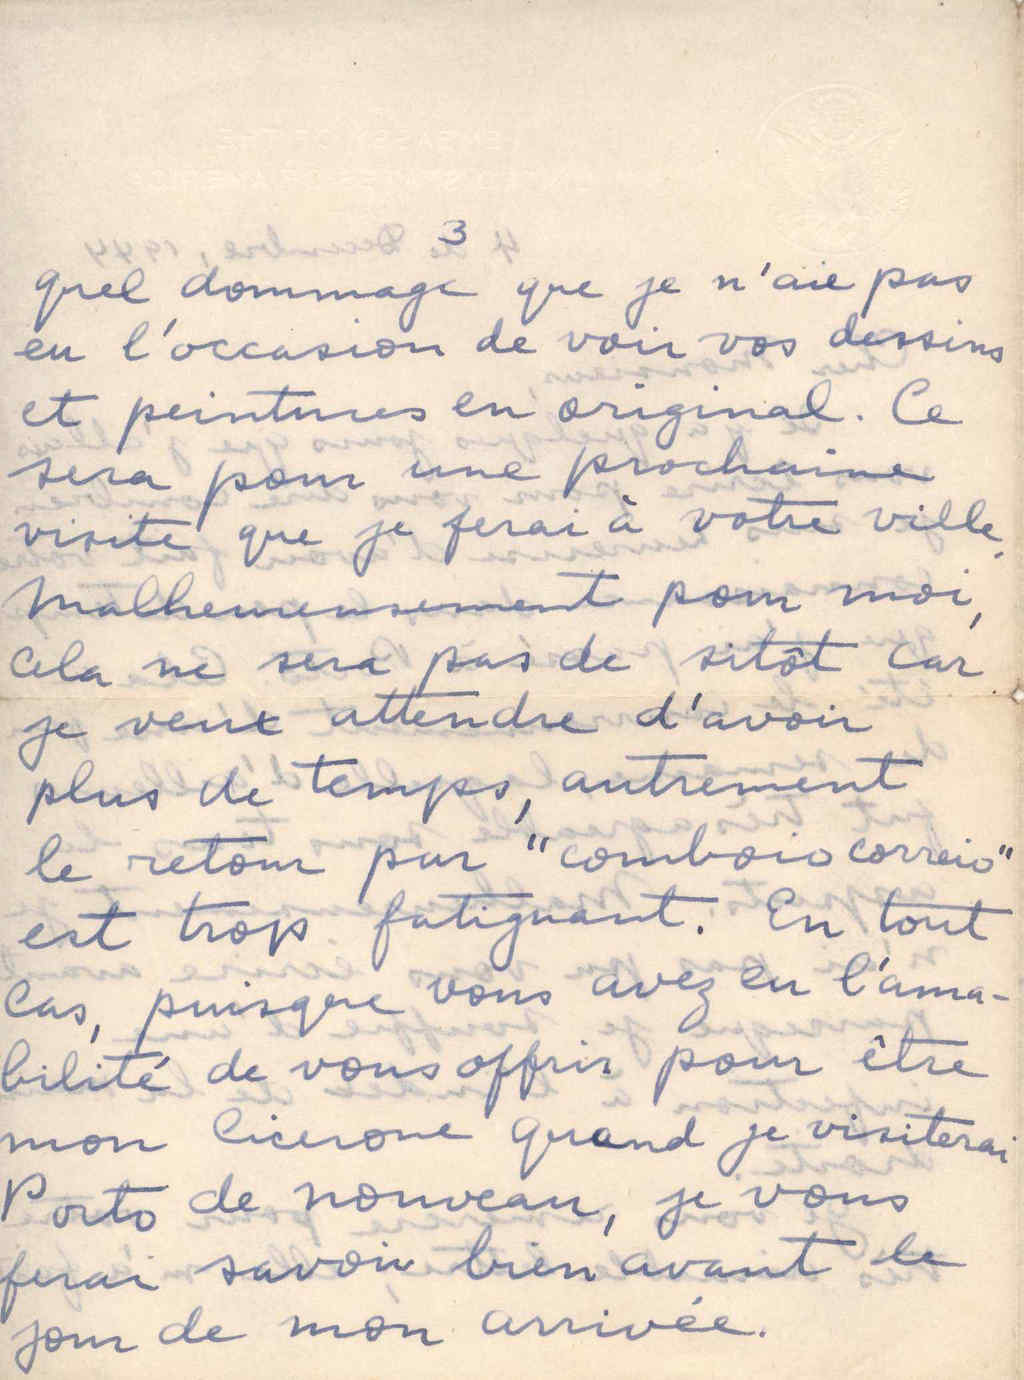 3
quel dommage que je n'aie pas
eu l'occasion de voir vos dessins
et peintures en original. Ce
sera pour une prochaine
visite que je ferai à votre ville.
Malheureusement pour moi,
cela ne sera pas de sitôt car
je veux attendre d'avoir
plus de temps, autrement
le retour par "comboio correio"
est trop fatiguant. En tout
cas, puisque vous avez eu l'ama-
bilité de vous offrir pour être
mon Cicerone quand je visiterai
Porto de nouveau, je vous
ferai savoir bien avant le
jour de mon arrivée.